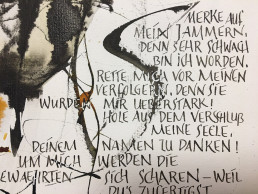 MERKE AUF
MEIN JAMMERN,
DENN SEHR SCHWACH
BIN ICH WORDEN.
RETTE MICH VOR MEINEN
VERFOLGERN, DENN SIE
WURDEN MIR UEBERSTARK!
HOLE AUS DEM VERSCHLUß
MEINE SEELE,
DEINEM NAMEN ZU DANKEN!
UM MICH WERDEN DIE
BEWAEHRTEN SICH SCHAREN – WEIL
DU'S ZUFERTIGST